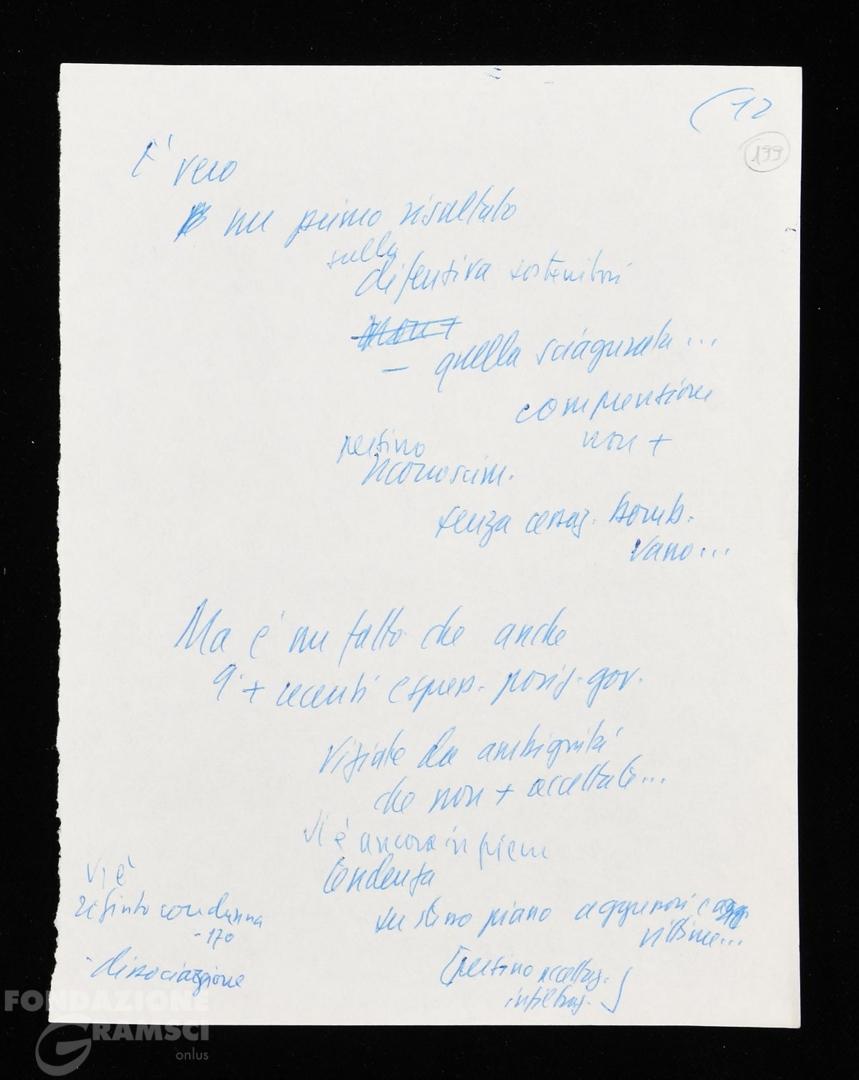 (12
199
E' vero
un primo risultato
sulla
difensiva sostenitori
– quella sciagurata...
comprensione
non +
persino
riconoscim.
senza cessaz. bomb.
vano...
Ma è un fatto che anche
q. + recenti espress. posiz. gov.
viziate da ambiguità
che non + accettate...
Vi è ancora in pieno
tendenza
su stesso piano aggressori e agg
vittime...
[persino accettaz.
infiltraz.]
Vi è
rifiuto condanna
- 170
- dissociazione
FONDAZIONE
GRAMSCI
onlus